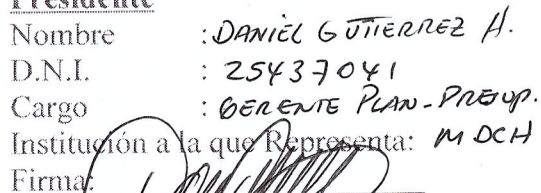 Presidente
Nombre : DANIEL GUTIERREZ H.
D.N.I. : 25437041
Cargo : GERENTE PLAN-PRESUP.
Institución a la que Representa: MDCH
Firma: